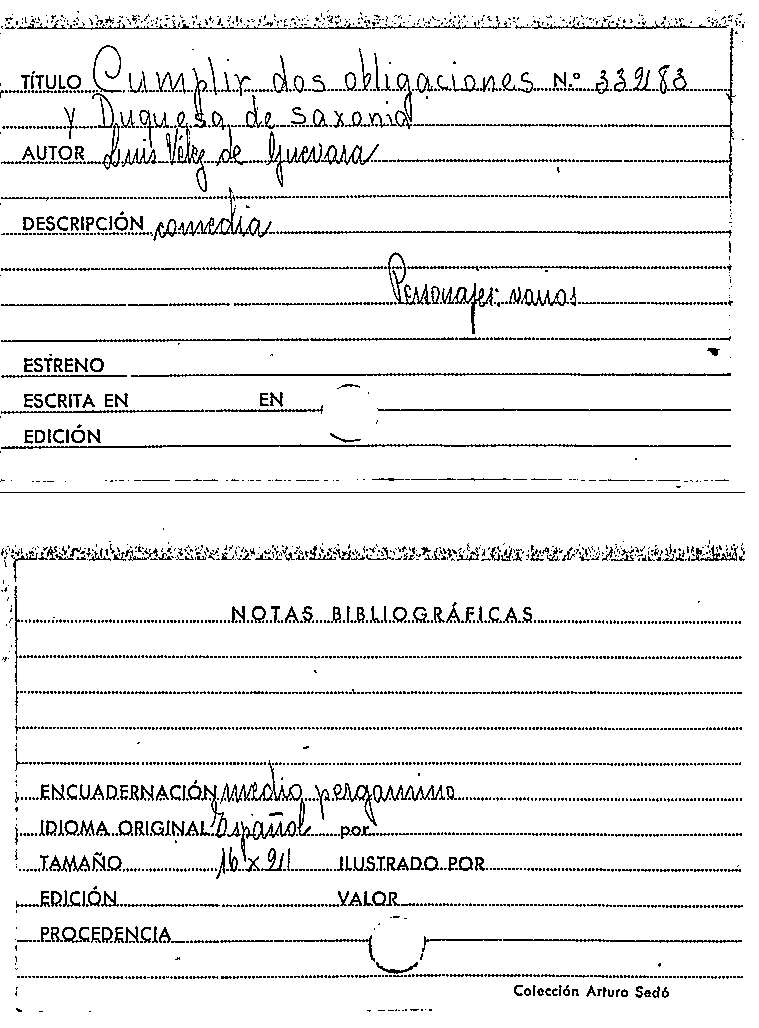 TÍTULO Cumplir dos obligaciones N.º 33983
y Duquesa de Saxonia
AUTOR Luis Vélez de Guevara
DESCRIPCIÓN comedia
Personajes: varios
ESTRENO
ESCRITA EN EN
EDICIÓN
NOTAS BIBLIOGRÁFICAS
ENCUADERNACIÓN medio pergamino
IDIOMA ORIGINAL Español por
TAMAÑO 16 x 211 ILUSTRADO POR
EDICIÓN VALOR
PROCEDENCIA
Colección Arturo Sedó